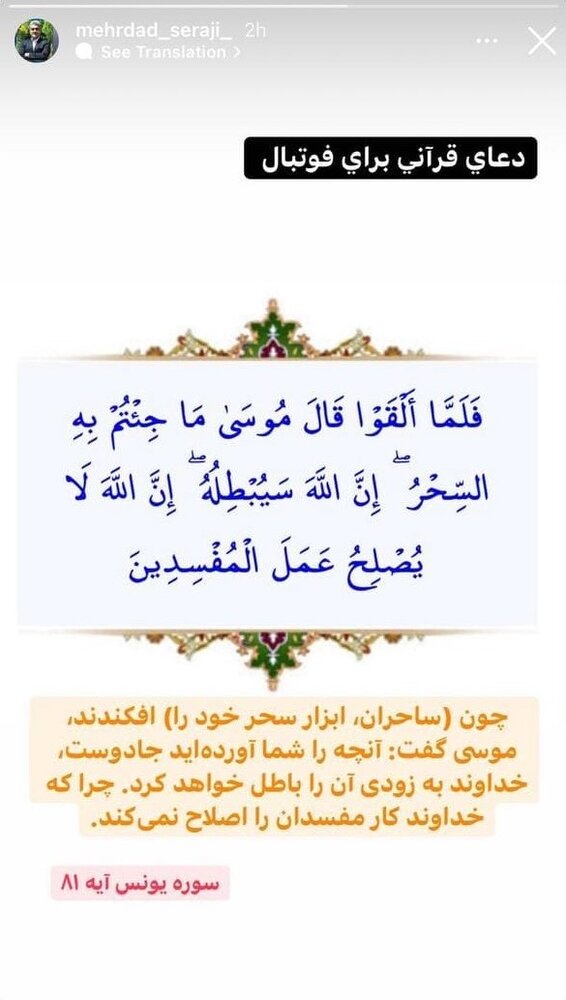 mehrdad_seraji_ 2h
See Translation >
دعاي قرآني براي فوتبال
فَلَمَّا أَلْقَوْا قَالَ مُوسَىٰ مَا جِئْتُمْ بِهِ
السِّحْرُ ۖ إِنَّ اللَّهَ سَيُبْطِلُهُ ۖ إِنَّ اللَّهَ لَا
يُصْلِحُ عَمَلَ الْمُفْسِدِينَ
چون (ساحران، ابزار سحر خود را) افکندند،
موسی گفت: آنچه را شما آورده‌اید جادوست،
خداوند به زودی آن را باطل خواهد کرد. چرا که
خداوند کار مفسدان را اصلاح نمی‌کند.
سوره یونس آیه ۸۱